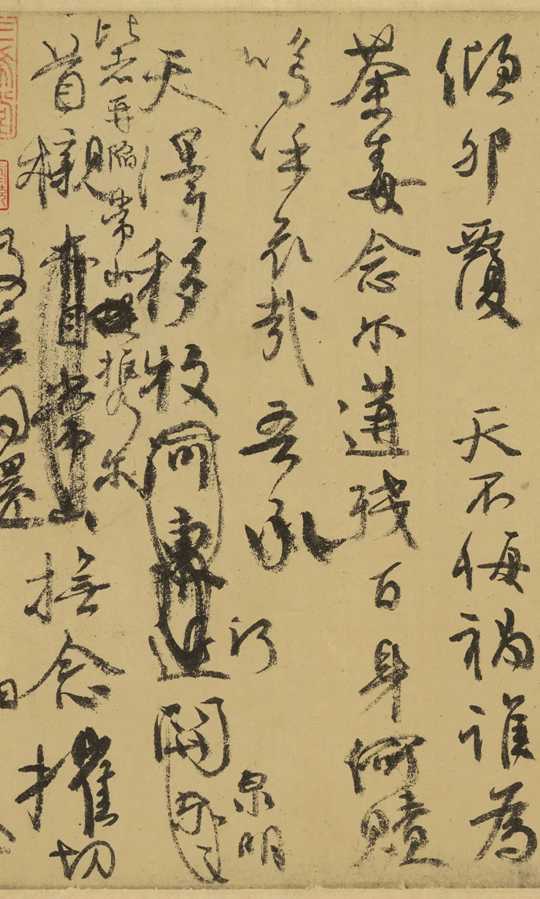 傾卵覆 天不悔禍誰為
荼毒念爾遘殘百身何贖
嗚呼哀哉吾承
泉明
天澤移牧河關
比者再陷常山攜爾
首櫬常撫念摧切
及茲同還